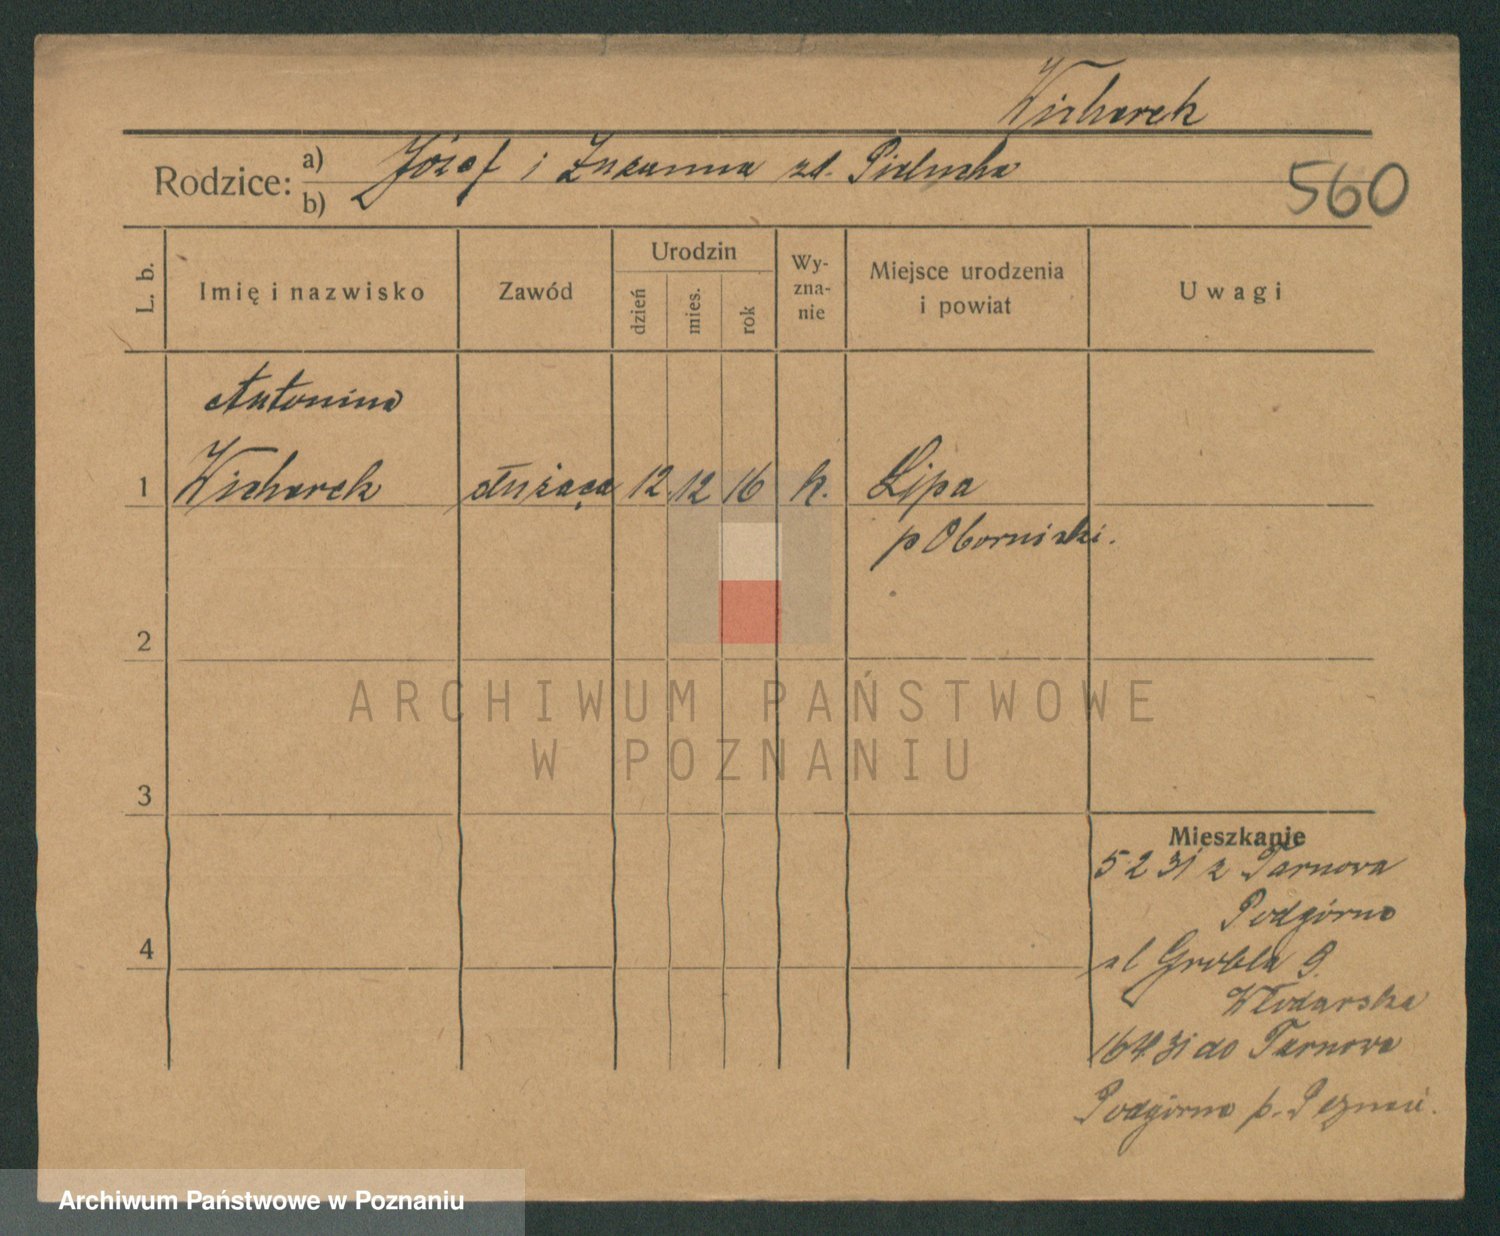 Wicharek
Rodzice: a) Józef i Zuzanna zd. Pielucha
b)
560
L. b.
Imię i nazwisko
Zawód
Urodzin
dzień
mies.
rok
Wy-
zna-
nie
Miejsce urodzenia
i powiat
Uwagi
Antonina
1 Wicharek służąca 12 12 16 k. Lipa
p Obornicki.
2
ARCHIWUM PAŃSTWOWE
W POZNANIU
3
Mieszkanie
5 2 31 z Tarnowa
Podgórne
4
ul Grobla 9.
Włodarska
16 4 31 do Tarnowa
Podgórne p. Poznań.
Archiwum Państwowe w Poznaniu